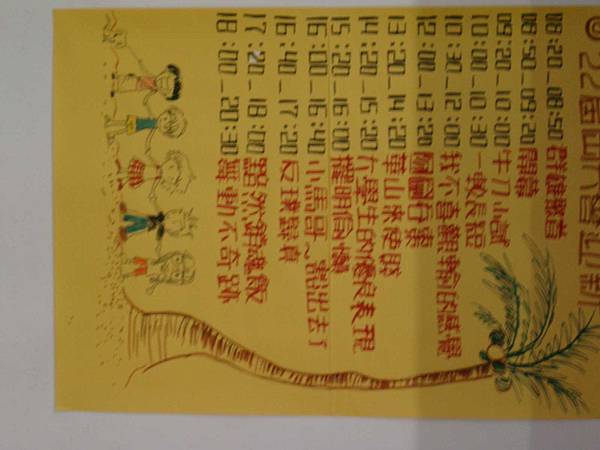 22屆
08:20-08:50 群雄聚首
08:50-09:20 開幕
09:20-10:00 牛刀小試
10:00-10:30 一
10:30-12:00 我不喜歡輸的感覺
12:00-13:20
13:20-14:20 華山來
14:20-15:20 學生的優良表現
15:20-16:00
16:00-16:40 小馬哥~豁出去了
16:40-17:20 反璞歸真
17:20-18:00 黯然銷魂飯
18:00-20:30 舞動不奇跡